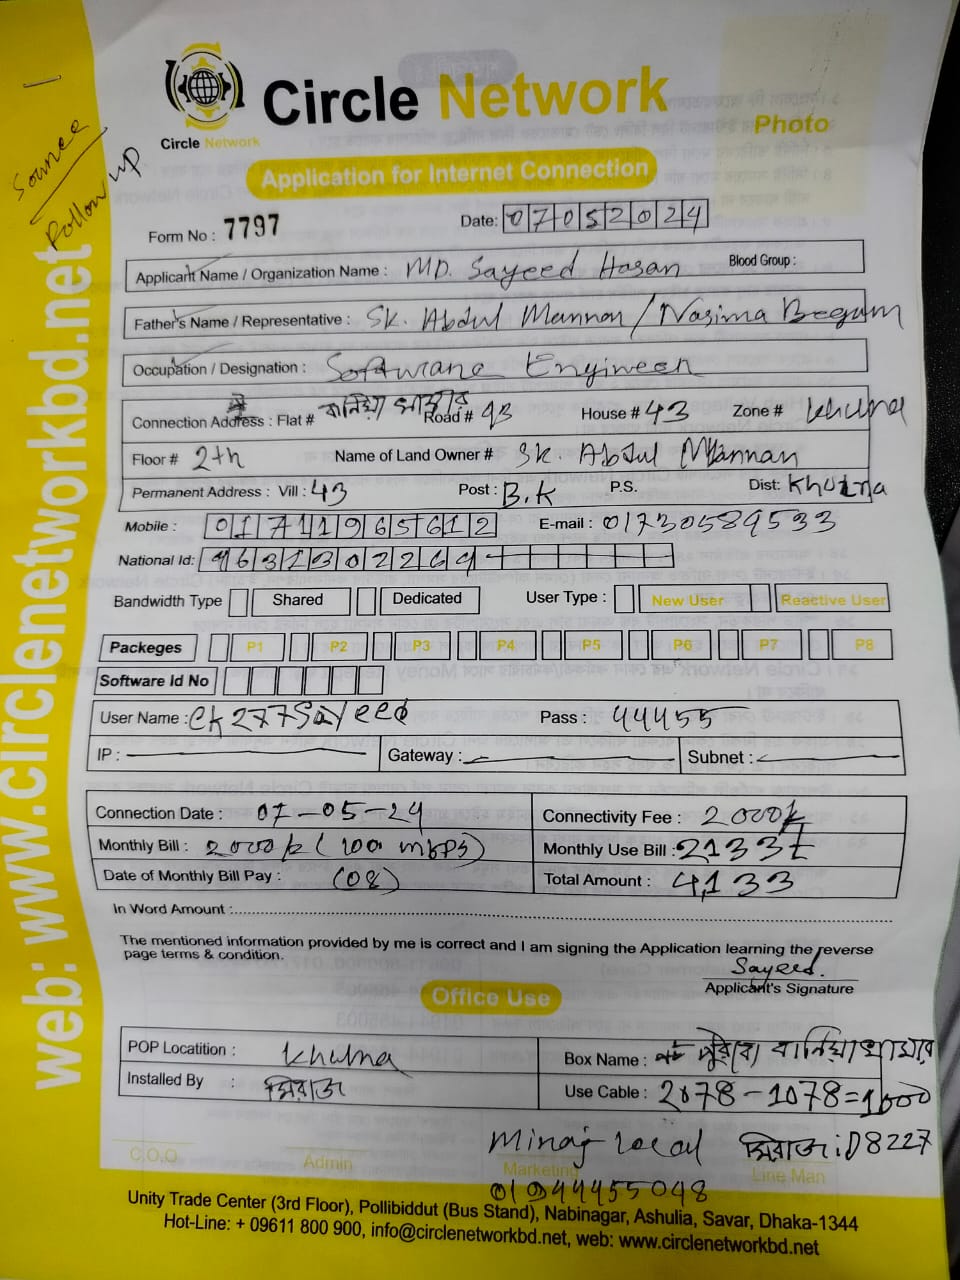 Circle Network
Circle Network
Photo
Source
Follow up
Application for Internet Connection
Form No : 7797
Date: 07052024
Applicant Name / Organization Name : MD. Sayeed Hasan Blood Group :
Father's Name / Representative : SK. Abdul Mannan / Nasima Begum
Occupation / Designation : Software Engineer
Connection Address : Flat # বানিয়া খামার Road # 93 House # 43 Zone # Khulna
Floor # 2th Name of Land Owner # SK. Abdul Mannan
Permanent Address : Vill : 43 Post : B.K P.S. Dist: Khulna
Mobile : 01711965612 E-mail : 01730589533
National Id: 9631302269
Bandwidth Type Shared Dedicated User Type : New User Reactive User
Packeges P1 P2 P3 P4 P5 P6 P7 P8
Software Id No
User Name : Pass : 44455
IP : Gateway : Subnet :
Connection Date : 07-05-24 Connectivity Fee : 2000
Monthly Bill : 2000 (100 mbps) Monthly Use Bill : 2133
Date of Monthly Bill Pay : (08) Total Amount : 4,133
In Word Amount :
The mentioned information provided by me is correct and I am signing the Application learning the reverse
page terms & condition.
Sayeed.
Applicant's Signature
Office Use
POP Locatition : Khulna Box Name : বানিয়াখামার
Installed By : মিরাজ Use Cable : 2078-1078=1000
Minaj local মিরাজ iD 8227
C.O.O Admin Marketing Line Man
01944455048
Unity Trade Center (3rd Floor), Pollibiddut (Bus Stand), Nabinagar, Ashulia, Savar, Dhaka-1344
Hot-Line: + 09611 800 900, info@circlenetworkbd.net, web: www.circlenetworkbd.net
web: www.circlenetworkbd.net